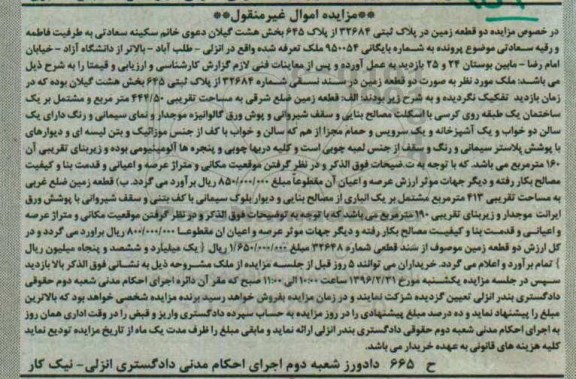 **مزایده اموال غیرمنقول**
در خصوص مزایده دو قطعه زمین در پلاک ثبتی ۳۲۶۸۴ از پلاک ۶۴۵ بخش هشت گیلان دعوی خانم سکینه سعادتی به طرفیت فاطمه
و رقیه سعادتی موضوع پرونده به شماره بایگانی ۹۵۰۰۵۴ ملک تعرفه شده واقع در انزلی - طلب آباد - بالاتر از دانشگاه آزاد - خیابان
امام رضا - مابین بوستان ۲۴ و ۲۵ بازدید به عمل آورده و پس از معاینات فنی لازم گزارش کارشناسی و ارزیابی و قیمتها را به شرح ذیل
می باشد: ملک مورد نظر به صورت دو قطعه زمین در سند نسقی شماره ۳۲۶۸۴ از پلاک ثبتی ۶۴۵ بخش هشت گیلان بوده که در
زمان بازدید تفکیک نگردیده و به شرح زیر بودند: الف: قطعه زمین ضلع شرقی به مساحت تقریبی ۴۴۴/۵۰ متر مربع و مشتمل بر یک
ساختمان یک طبقه روی کرسی با اسکلت مصالح بنایی و سقف شیروانی و پوش ورق گالوانیزه موجدار و نمای سیمانی و رنگ دارای یک
سالن دو خواب و یک آشپزخانه و یک سرویس و حمام مجزا از هم که سالن و خواب با کف از جنس موزائیک و بتن لیسه ای و دیوارهای
با پوشش پلاستر سیمانی و رنگ و سقف از جنس لمبه چوبی است و کلیه دربها چوبی و پنجره ها آلومینیومی بوده و زیربنای تقریبی آن
۱۶۰ مترمربع می باشد. که با توجه به توضیحات فوق الذکر و در نظر گرفتن موقعیت مکانی و متراژ عرصه و اعیانی و قدمت بنا و کیفیت
مصالح بکار رفته و دیگر جهات موثر ارزش عرصه و اعیان آن مقطوعاً مبلغ ۸۵۰/۰۰۰/۰۰۰ ریال برآورد می گردد. ب) قطعه زمین ضلع غربی
به مساحت تقریبی ۴۱۳ مترمربع مشتمل بر یک انباری از مصالح بنایی و دیوار بلوک سیمانی با کف بتنی و سقف شیروانی با پوشش ورق
ایرانت موجدار و زیربنای تقریبی ۱۹۰ مترمربع می باشد که با توجه به توضیحات فوق الذکر و در نظر گرفتن موقعیت مکانی و متراژ عرصه
و اعیانی و قدمت بنا و کیفیت مصالح بکار رفته و دیگر جهات موثر عرصه و اعیان آن مقطوعاً ۸۰۰/۰۰۰/۰۰۰ ریال برآورد می گردد و در
کل ارزش دو قطعه زمین موصوف از سند قطعی شماره ۳۲۶۴۸ مبلغ ۱/۶۵۰/۰۰۰/۰۰۰ ریال { یک میلیارد و ششصد و پنجاه میلیون ریال
} تمام برآورد و اعلام می گردد. خریداران می توانند ۵ روز قبل از جلسه مزایده از ملک مشروحه ذیل به نشانی فوق الذکر بالا بازدید
سپس در جلسه مزایده یکشنبه مورخ ۱۳۹۶/۲/۳۱ ساعت ۱۰:۰۰ الی ۱۱:۰۰ صبح که مقر آن دائره اجرای احکام مدنی شعبه دوم حقوقی
دادگستری بندر انزلی تعیین گردیده شرکت نمایند و در زمان مزایده بفروش خواهد رسید برنده مزایده شخصی خواهد بود که بالاترین
مبلغ را پیشنهاد نماید و ده درصد مبلغ پیشنهادی را در روز مزایده به حساب سپرده دادگستری واریز و قبض را در وقت اداری همان روز
به اجرای احکام مدنی شعبه دوم حقوقی دادگستری بندر انزلی ارائه نماید و مابقی مبلغ را ظرف مدت یک ماه از تاریخ مزایده تودیع نماید
کلیه هزینه های قانونی به عهده خریدار می باشد.
ح ۶۶۵ دادورز شعبه دوم اجرای احکام مدنی دادگستری انزلی- نیک کار